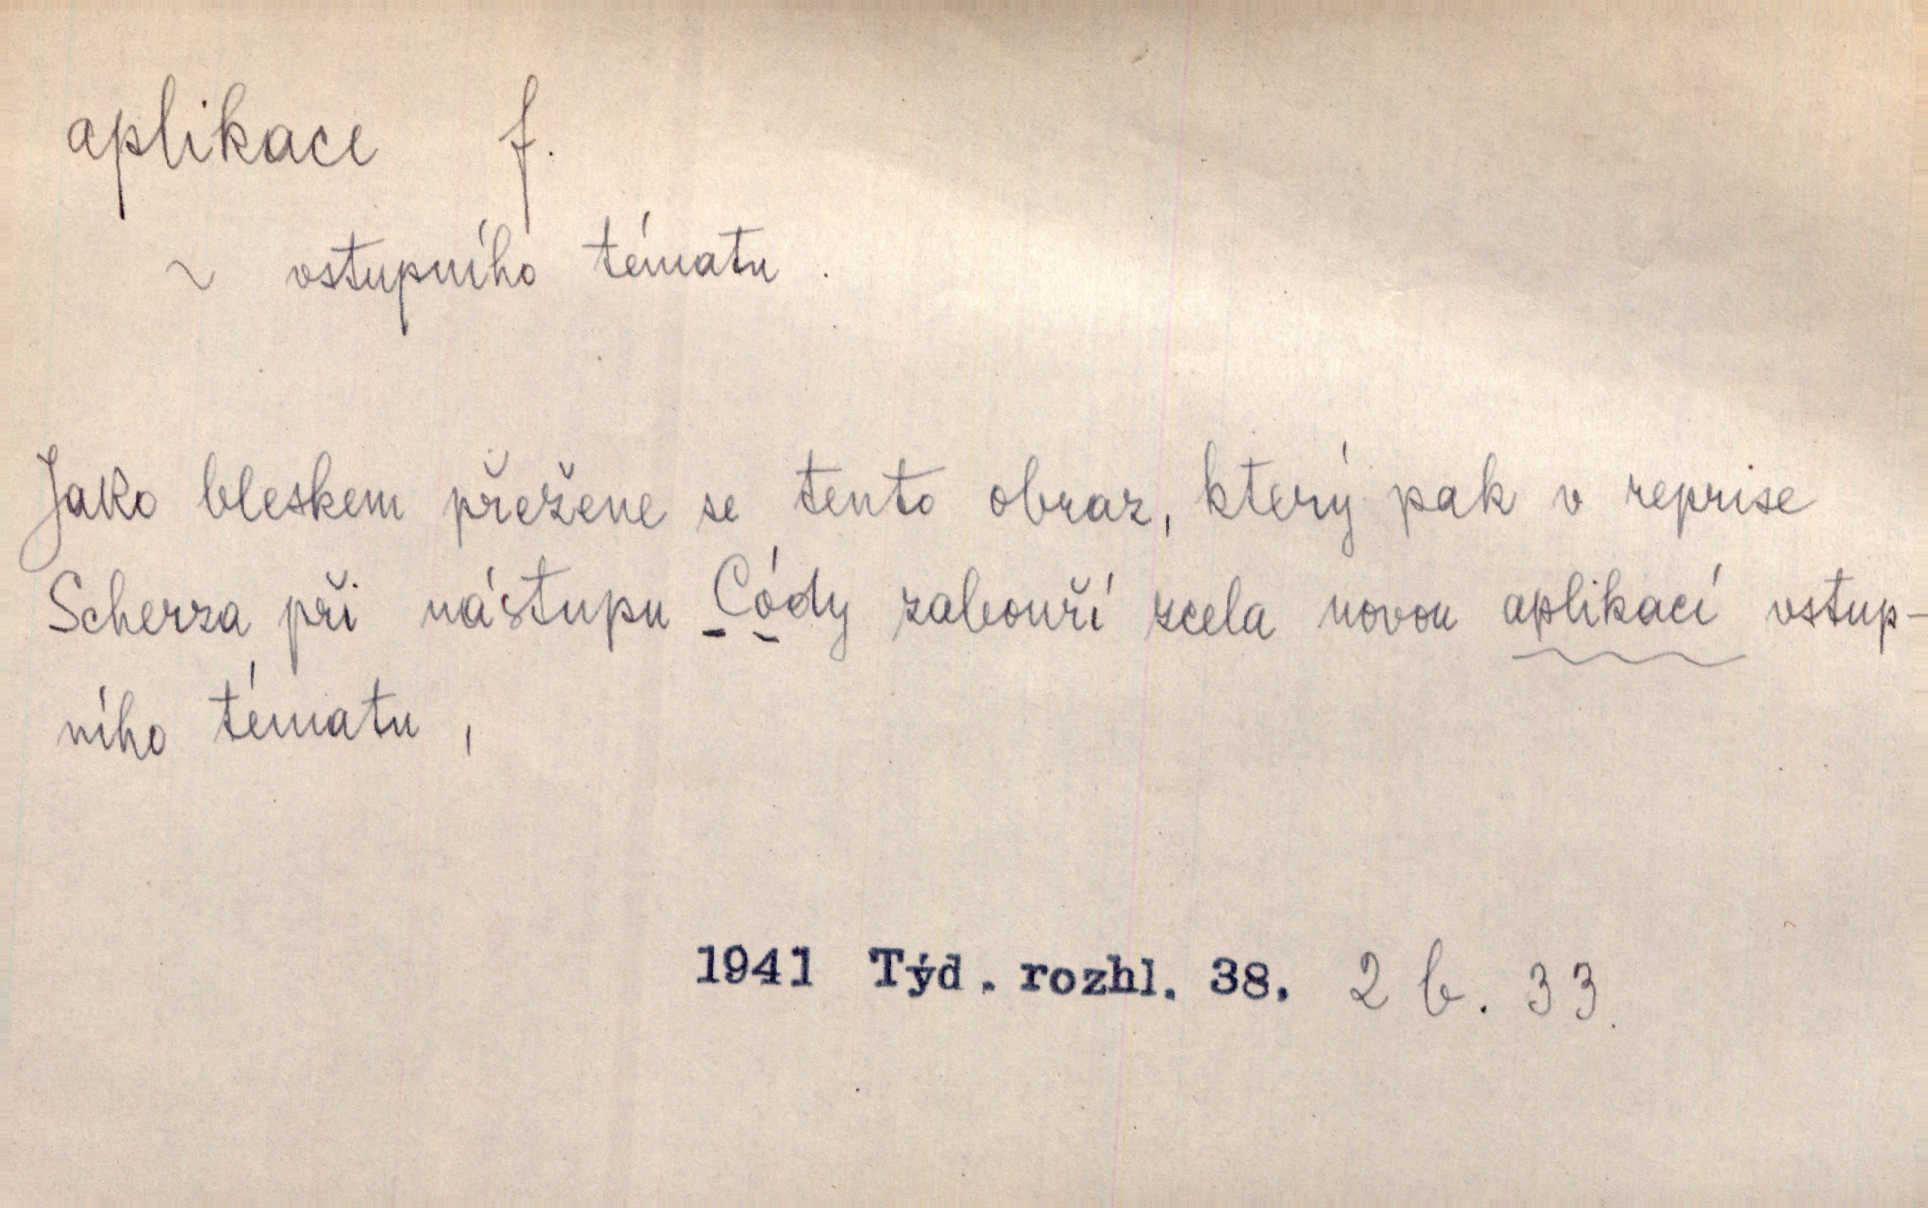 aplikace f.
~ vstupního tématu.
Jako bleskem přežene se tento obraz, který pak v reprise
Scherza při nástupu Códy zabouří zcela novou aplikací vstup-
ního tématu,
1941 Týd. rozhl. 38. 2 b. 33.